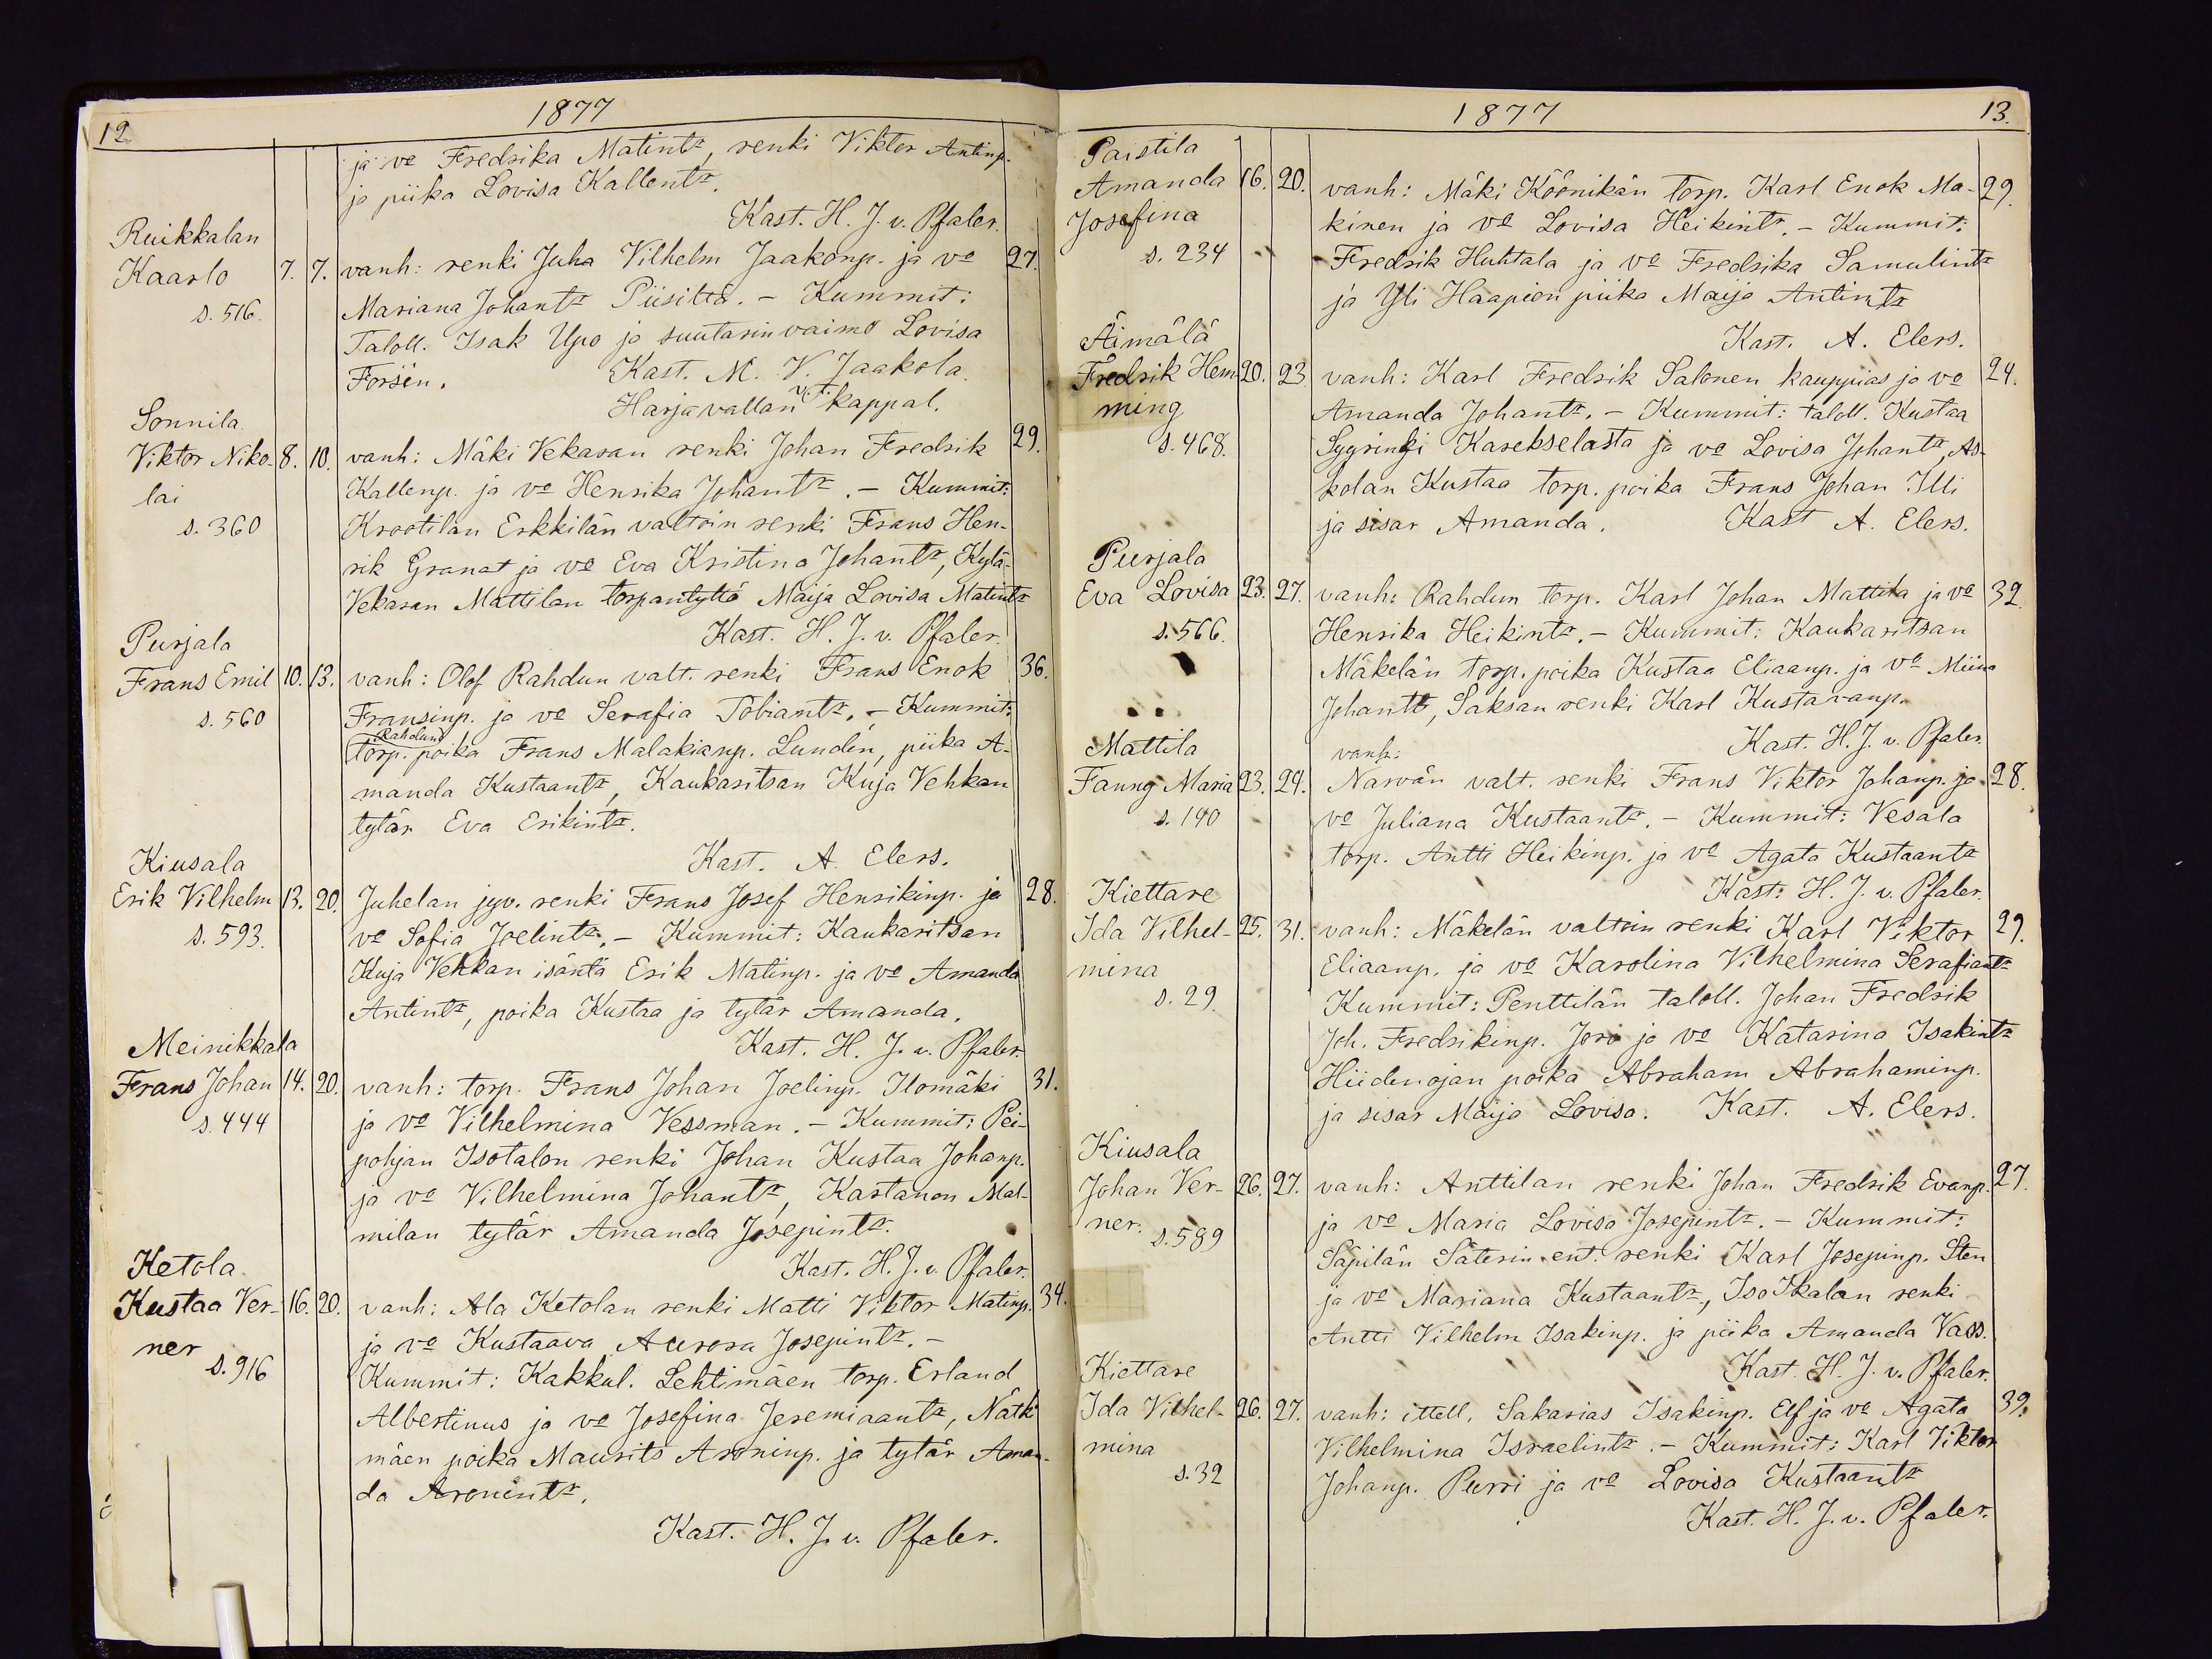 12.
1877
ja vo Fredrika Matintr, renki Viktor Antinp.
ja piika Lovisa Kallentr.
Kast. H. J. v. Pfaler.
Ruikkalan
Kaarlo 7. 7. vanh: renki Juha Vilhelm Jaakonp. ja vo 27.
s. 516. Mariana Johantr Piisiltä. - Kummit:
Taloll. Isak Upo ja suutarin vaimo Lovisa
Forsén. Kast. M. V. Jaakola.
Harjavallan v.t. kappal.
Sonnila
Viktor Niko- 8. 10. vanh: Mäki Vekaran renki Johan Fredrik 29.
lai Kallenp. ja vo Henrika Johantr. - Kummit:
s. 360 Krootilan Erkkilän valtoin renki Frans Hen-
rik Granat ja vo Eva Kristina Johantr, Kylä-
Vekaran Mattilan torpantyttö Maija Lovisa Matintr
Kast. H. J. v. Pfaler.
Purjala
Frans Emil 10. 13. vanh: Olof Rahdun valt. renki Frans Enok 36.
s. 560 Fransinp. ja vo Serafia Tobiantr. - Kummit:
Rahdun
torp. poika Frans Malakianp. Lundén, piika A-
manda Kustaantr, Kaukaritsan Kuja Vehkan
tytär Eva Erikintr.
Kast. A. Elers.
Kiusala
Erik Vilhelm 13. 20. Juhelan jyv. renki Frans Josef Henrikinp. ja 28.
s. 593. vo Sofia Joelintr. - Kummit: Kaukaritsan
Kuja Vehkan isäntä Erik Matinp. ja vo Amanda
Antintr, poika Kustaa ja tytär Amanda.
Kast. H. J. v. Pfaler.
Meinikkala
Frans Johan 14. 20. vanh: torp. Frans Johan Joelinp. Ilomäki 31.
s. 444 ja vo Vilhelmina Vessman. - Kummit: Pei-
pohjan Isotalon renki Johan Kustaa Johanp.
ja vo Vilhelmina Johantr, Kastanon Mal-
milan tytär Amanda Josepintr.
Kast. H. J. v. Pfaler.
Ketola
Kustaa Ver- 16. 20. vanh: Ala Ketolan renki Matti Viktor Matinp. 34.
ner ja vo Kustaava Aurora Josepintr. -
s. 916 Kummit: Kakkul. Lehtimäen torp. Erland
Albertinus ja vo Josefina Jeremiaantr, Nätki
mäen poika Maurits Aroninp. ja tytär Aman-
da Aronintr.
Kast. H. J. v. Pfaler.
1877
13.
Paistila
Amanda 16. 20. vanh: Mäki Köönikän torp. Karl Enok Ma- 29.
Josefina kinen ja vo Lovisa Heikintr. - Kummit:
s. 234 Fredrik Huhtala ja vo Fredrika Samulintr
ja Yli Haapion piika Maija Antintr
Kast. A. Elers.
Äimälä
Fredrik Hem- 20. 23 vanh: Karl Fredrik Salonen kauppias ja vo 24.
ming Amanda Johantr. - Kummit: taloll. Kustaa
s. 468. Sygrinki Karekselasta ja vo Lovisa Johantr, As-
kolan Kustaa torp. poika Frans Johan Illi
ja sisar Amanda. Kast A. Elers.
Purjala
Eva Lovisa 23. 27. vanh: Rahdun torp. Karl Johan Mattila ja vo 32.
s. 566. Henrika Heikintr. - Kummit: Kaukaritsan
Mäkelän torp. poika Kustaa Eliaanp. ja vo Miina
Johantr, Saksan renki Karl Kustavanp.
Kast. H. J. v. Pfaler.
Mattila vanh:
Fanny Maria 23. 24. Narvän valt. renki Frans Viktor Johanp. ja 28.
s. 140 vo Juliana Kustaantr. - Kummit: Vesala
torp. Antti Heikinp. ja vo Agata Kustaantr
Kast: H. J. v. Pfaler.
Kiettare
Ida Vilhel- 25. 31. vanh: Mäkelän valtoin renki Karl Viktor 29.
mina Eliaanp. ja vo Karolina Vilhelmina Serafiantr
s. 29. Kummit: Penttilän taloll. Johan Fredrik
Joh. Fredrikinp. Jori ja vo Katarina Isakintr
Hiidenojan poika Abraham Abrahaminp.
ja sisar Maija Lovisa. Kast. A. Elers.
Kiusala
Johan Ver- 26. 27. vanh: Anttilan renki Johan Fredrik Evanp. 27.
ner. ja vo Maria Lovisa Josepintr. - Kummit:
s. 589 Säpilän Säterin ent. renki Karl Josepinp. Sten
ja vo Mariana Kustaantr, Iso Ikalan renki
Antti Vilhelm Isakinp. ja piika Amanda Vass.
Kast. H. J. v. Pfaler.
Kiettare
Ida Vilhel- 26. 27. vanh: ittell. Sakarias Isakinp. Elf ja vo Agata 39.
mina Vilhelmina Israelintr. - Kummit: Karl Viktor
s. 32 Johanp. Purri ja vo Lovisa Kustaantr
Kast. H. J. v. Pfaler.